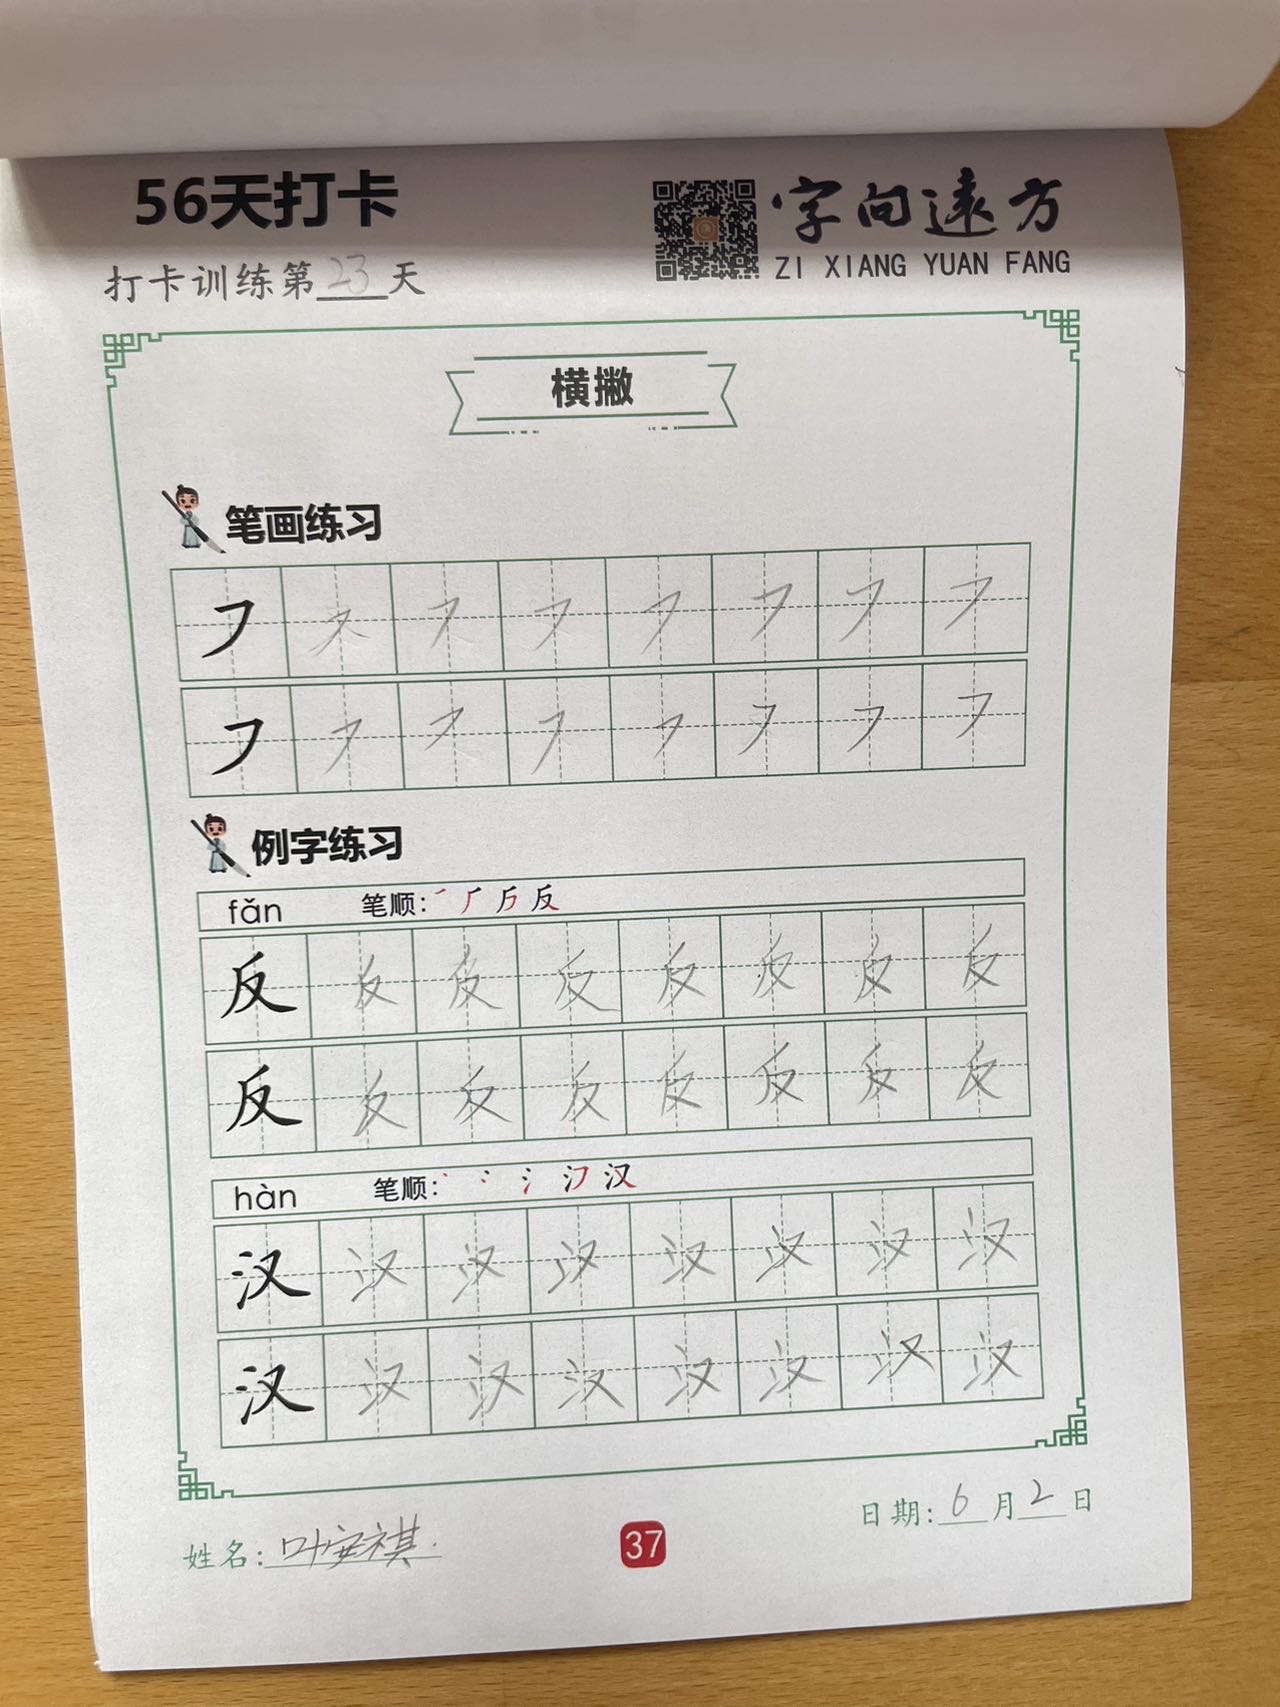 56天打卡
字向遠方
ZI XIANG YUAN FANG
打卡训练第23天
横撇
笔画练习
㇇ ㇇ ㇇ ㇇ ㇇ ㇇ ㇇ ㇇
㇇ ㇇ ㇇ ㇇ ㇇ ㇇ ㇇ ㇇
例字练习
fǎn 笔顺: 反
反 反 反 反 反 反 反 反
反 反 反 反 反 反 反 反
hàn 笔顺: 丶 冫 氵 汉
汉 汉 汉 汉 汉 汉 汉 汉
汉 汉 汉 汉 汉 汉 汉 汉
姓名: 叶安祺
37
日期: 6月2日